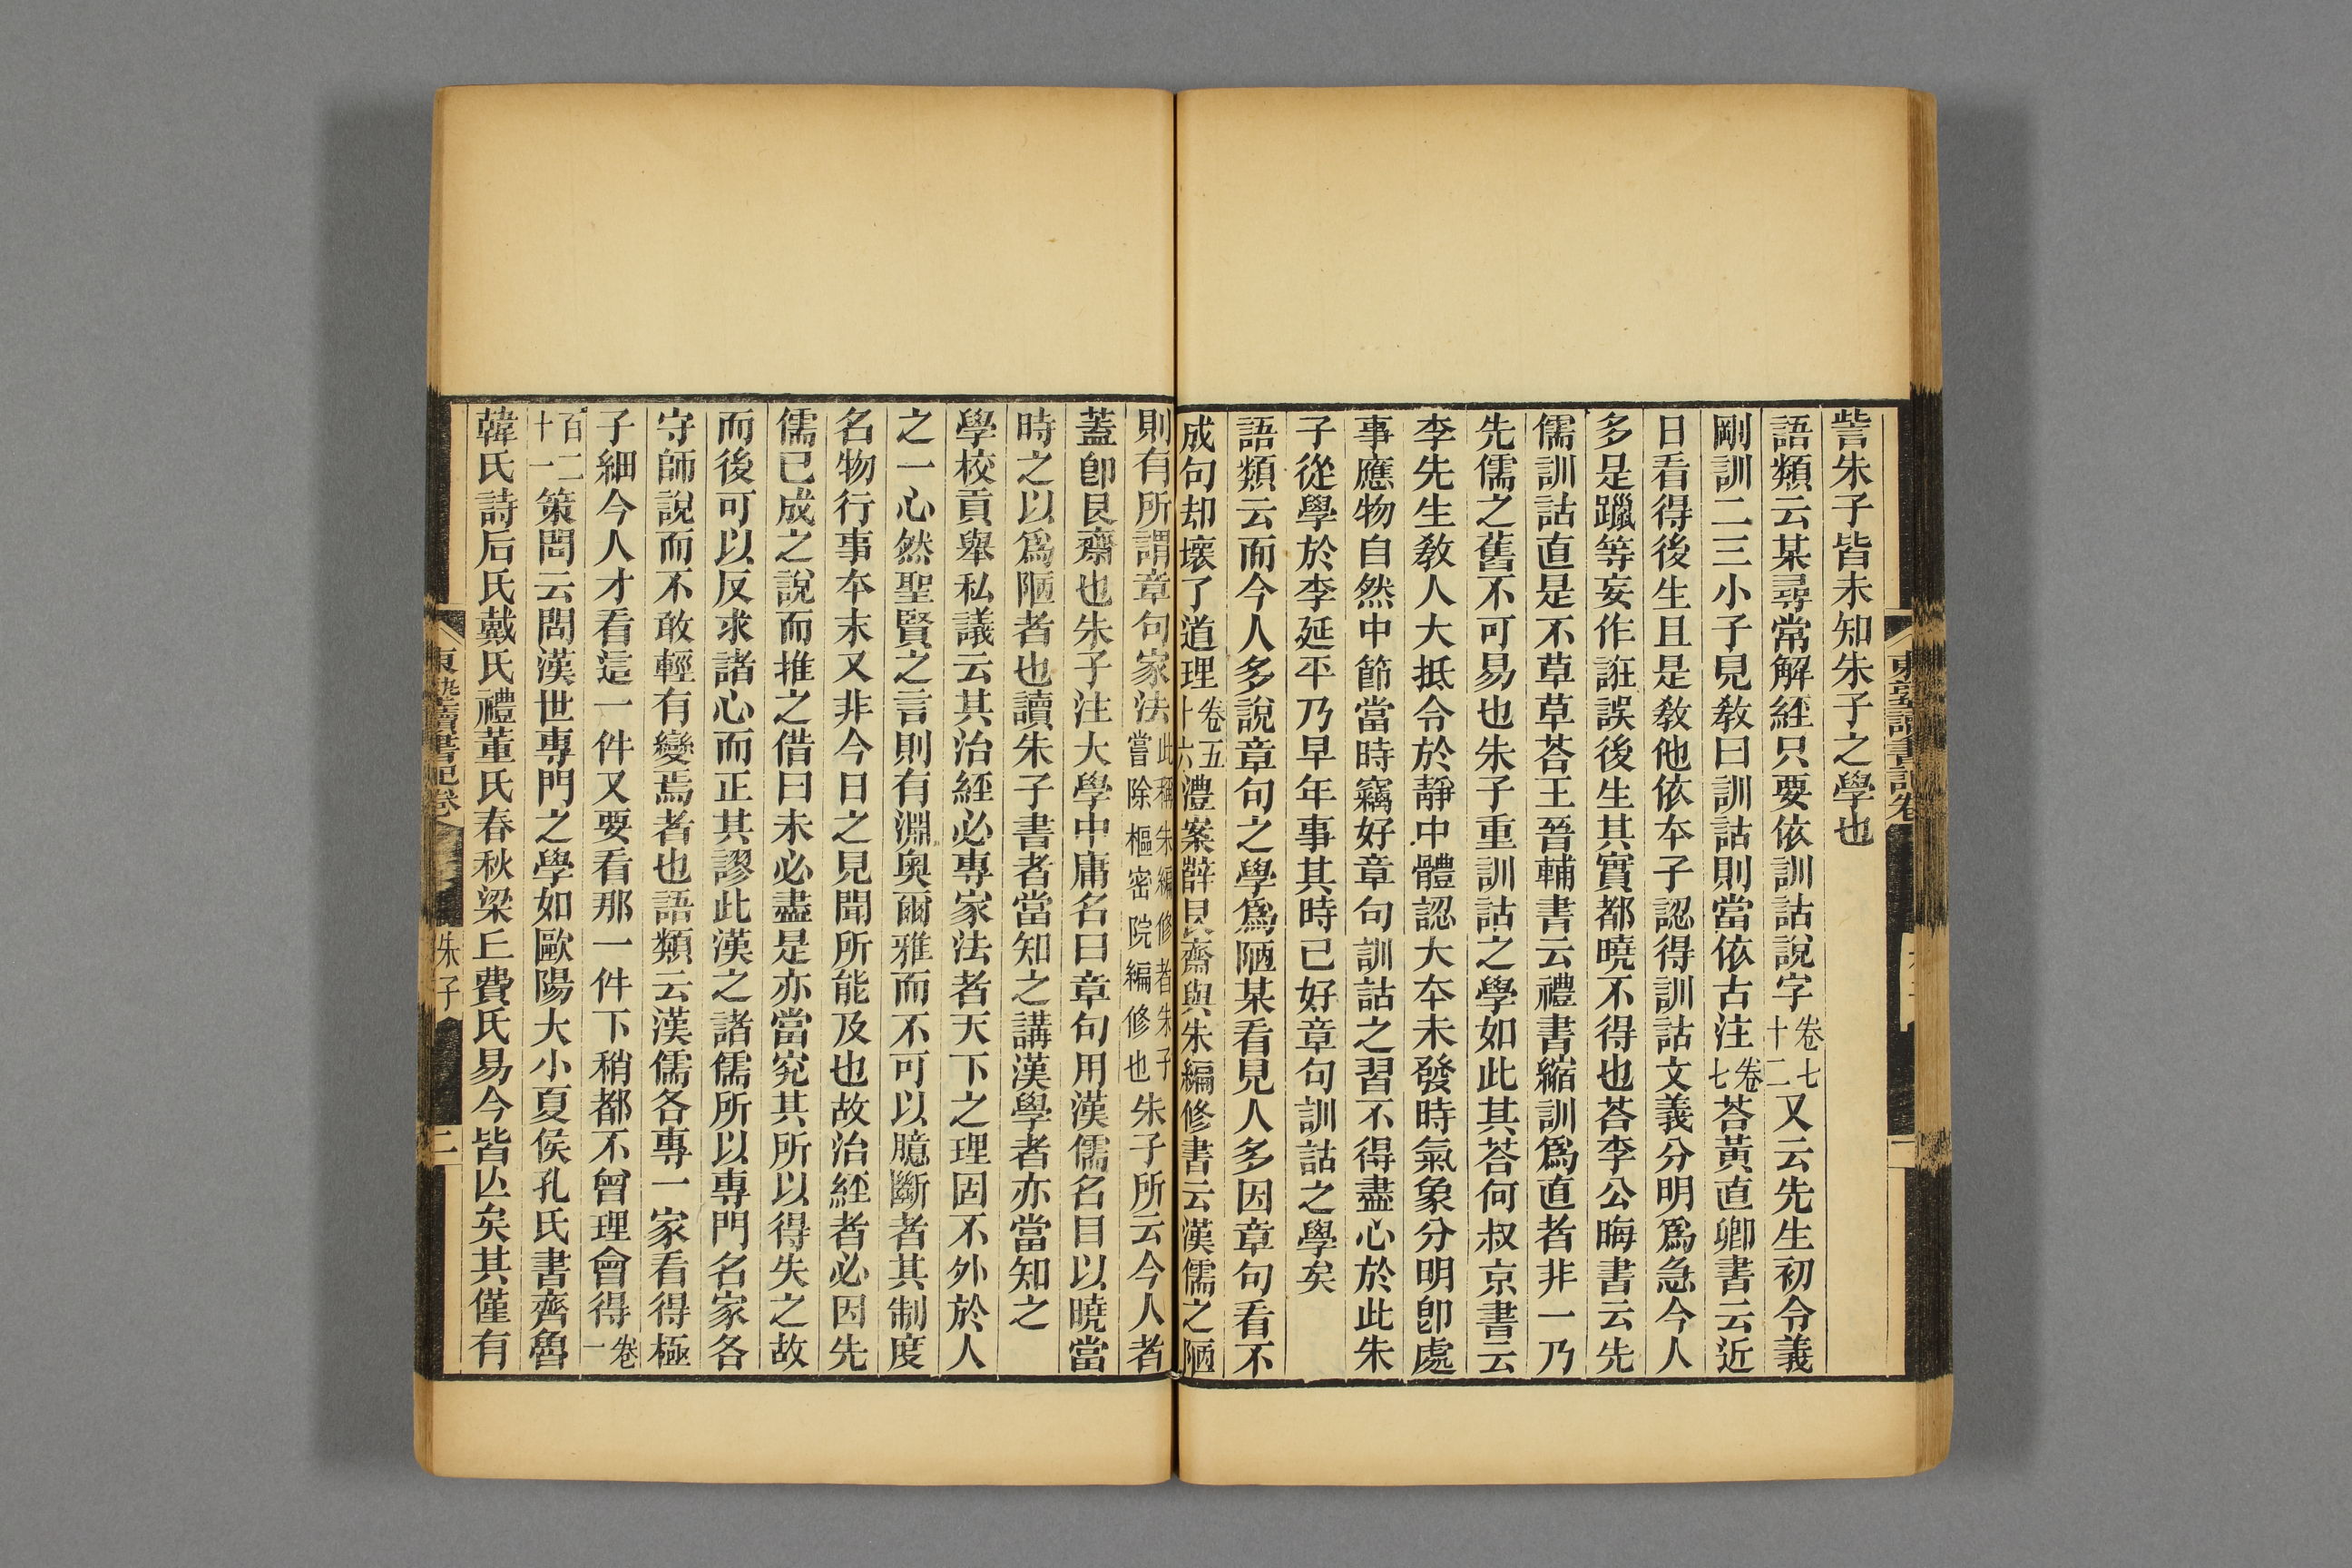 訾朱子皆未知朱子之學也
語類云某尋常解經只要依訓詁說字卷七十二又云先生初令義
剛訓二三小子見敎曰訓詁則當依古注卷七荅黃直卿書云近
日看得後生且是敎他依夲子認得訓詁文義分明爲急今人
多是躐等妄作誑誤後生其實都曉不得也荅李公晦書云先
儒訓詁直是不草草荅王晉輔書云禮書縮訓爲直者非一乃
先儒之舊不可易也朱子重訓詁之學如此其荅何叔京書云
李先生敎人大抵令於靜中體認大夲未發時氣象分明卽處
事應物自然中節當時竊好章句訓詁之習不得盡心於此朱
子從學於李延平乃早年事其時已好章句訓詁之學矣
語類云而今人多說章句之學爲陋某看見人多因章句看不
成句却壞了道理卷五十六澧案薛艮齋與朱編修書云漢儒之陋
則有所謂章句家法此稱朱編修者朱子嘗除樞密院編修也朱子所云今人者
蓋卽艮齋也朱子注大學中庸名曰章句用漢儒名目以曉當
時之以爲陋者也讀朱子書者當知之講漢學者亦當知之
學校貢舉私議云其治經必專家法者天下之理固不外於人
之一心然聖賢之言則有淵奧爾雅而不可以臆斷者其制度
名物行事夲末又非今日之見聞所能及也故治經者必因先
儒已成之說而推之借曰未必盡是亦當究其所以得失之故
而後可以反求諸心而正其謬此漢之諸儒所以專門名家各
守師說而不敢輕有變焉者也語類云漢儒各專一家看得極
子細今人才看這一件又要看那一件下稍都不曾理會得卷一
百二十一策問云問漢世專門之學如歐陽大小夏侯孔氏書齊魯
韓氏詩后氏戴氏禮董氏春秋梁丘費氏易今皆亾矣其僅有
東塾讀書記卷
朱子
二